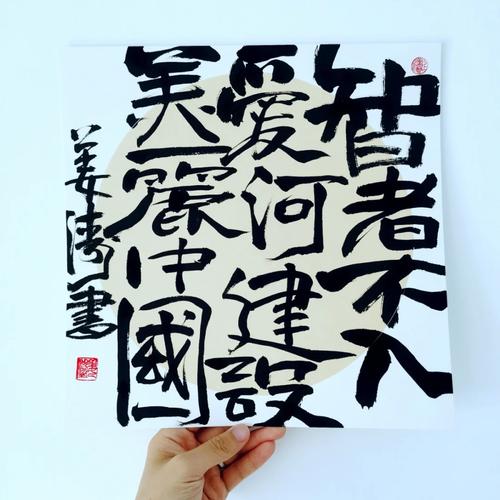 智者不入
愛河建設
美麗中國
姜濤書